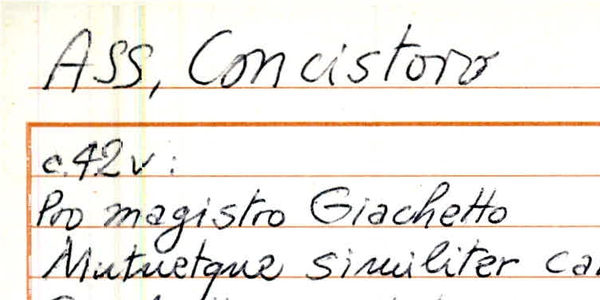 ASS, Concistoro
c.42v:
Pro magistro Giachetto
Mutuetque similiter